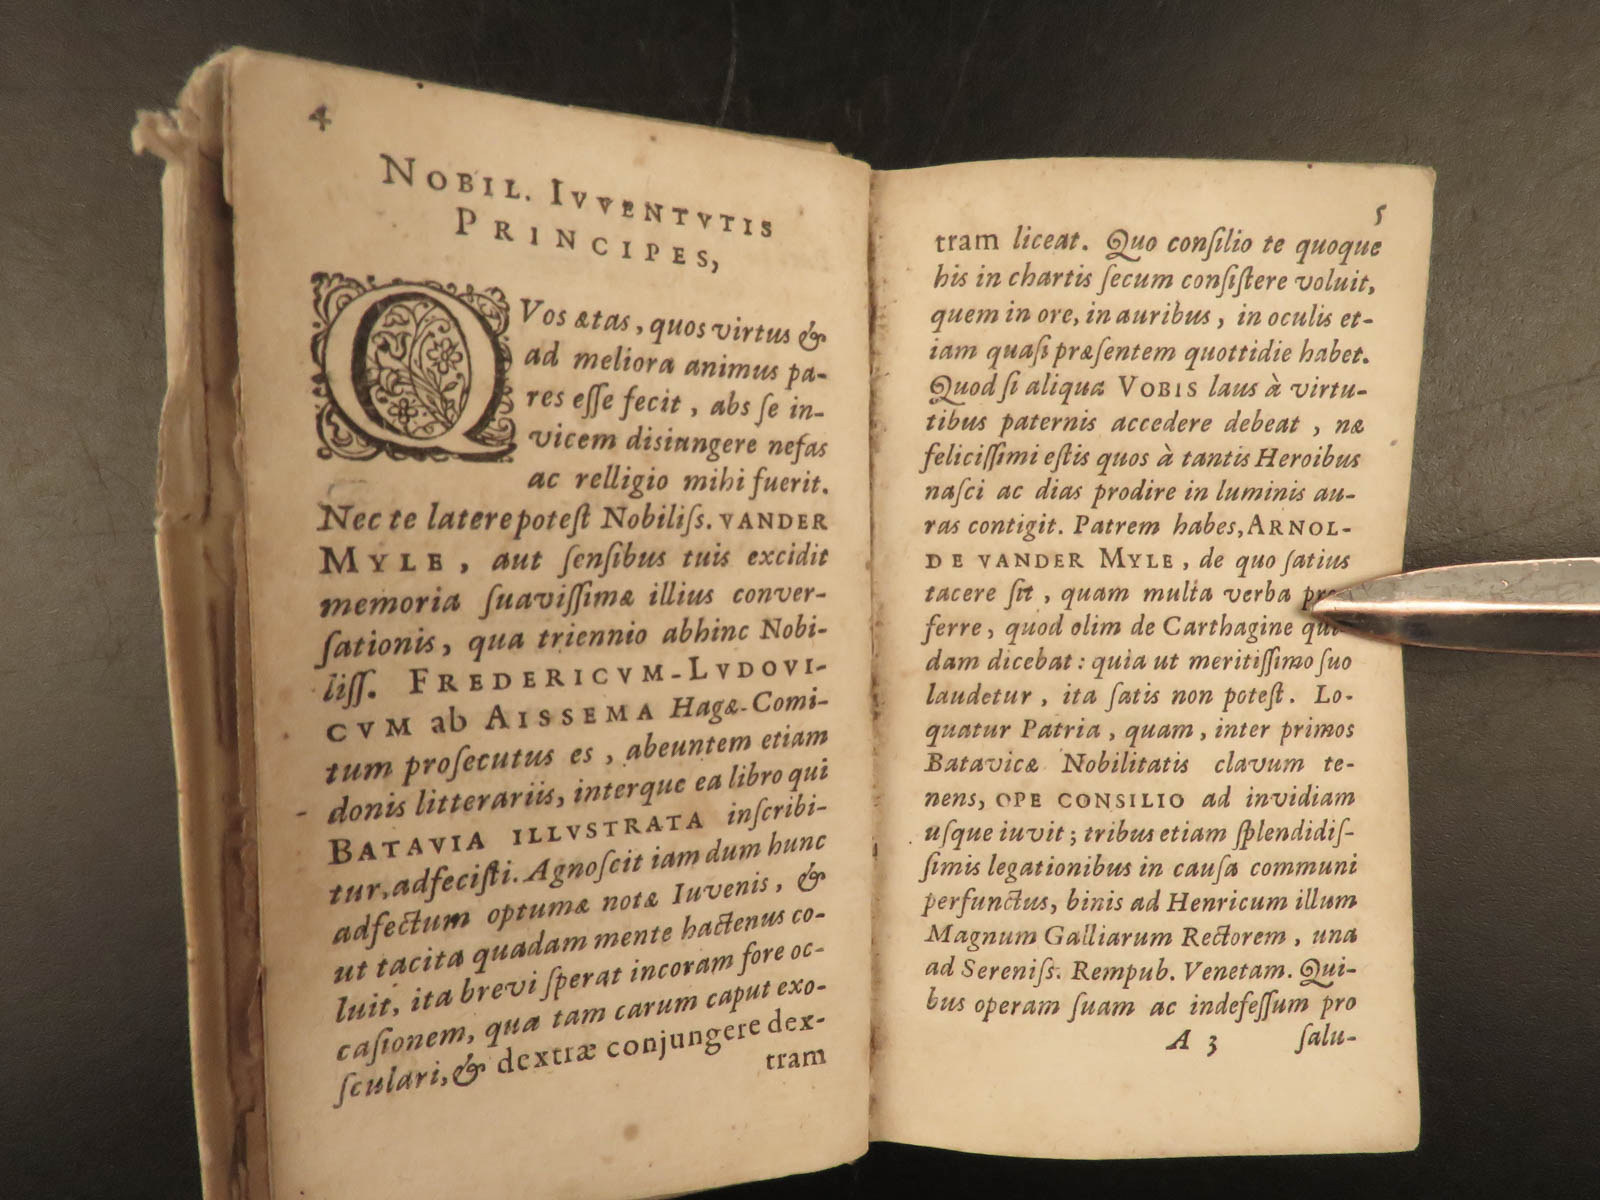 4
NOBIL. IVVENTVTIS
PRINCIPES,
QVos ætas, quos virtus &
ad meliora animus pa-
res eſſe fecit, abs ſe in-
vicem disiungere nefas
ac relligio mihi fuerit.
Nec te latere poteſt Nobiliſs. VANDER
MYLE, aut ſenſibus tuis excidit
memoria ſuaviſſimæ illius conver-
ſationis, qua triennio abhinc Nobi-
liſſ. FREDERICVM-LVDOVI-
CVM ab AISSEMA Hagæ-Comi-
tum proſecutus es, abeuntem etiam
donis litterariis, interque ea libro qui
BATAVIA ILLVSTRATA inſcribi-
tur, adfeciſti. Agnoſcit iam dum hunc
adfectum optumæ notæ Iuvenis, &
ut tacita quadam mente hactenus co-
luit, ita brevi ſperat incoram fore oc-
caſionem, qua tam carum caput exo-
ſculari, & dextræ conjungere dex-
tram
5
tram liceat. Quo conſilio te quoque
his in chartis ſecum conſiſtere voluit,
quem in ore, in auribus, in oculis et-
iam quaſi præſentem quottidie habet.
Quod ſi aliqua VOBIS laus à virtu-
tibus paternis accedere debeat, næ
feliciſſimi eſtis quos à tantis Heroibus
naſci ac dias prodire in luminis au-
ras contigit. Patrem habes, ARNOL-
DE VANDER MYLE, de quo ſatius
tacere ſit, quam multa verba
ferre, quod olim de Carthagine
dam dicebat: quia ut meritiſſimo ſuo
laudetur, ita ſatis non poteſt. Lo-
quatur Patria, quam, inter primos
Batavicæ Nobilitatis clavum te-
nens, OPE CONSILIO ad invidiam
uſque iuvit; tribus etiam ſplendidiſ-
ſimis legationibus in cauſa communi
perfunctus, binis ad Henricum illum
Magnum Galliarum Rectorem, una
ad Sereniſs. Rempub. Venetam. Qui-
bus operam ſuam ac indefeſſum pro
A 3 ſalu-